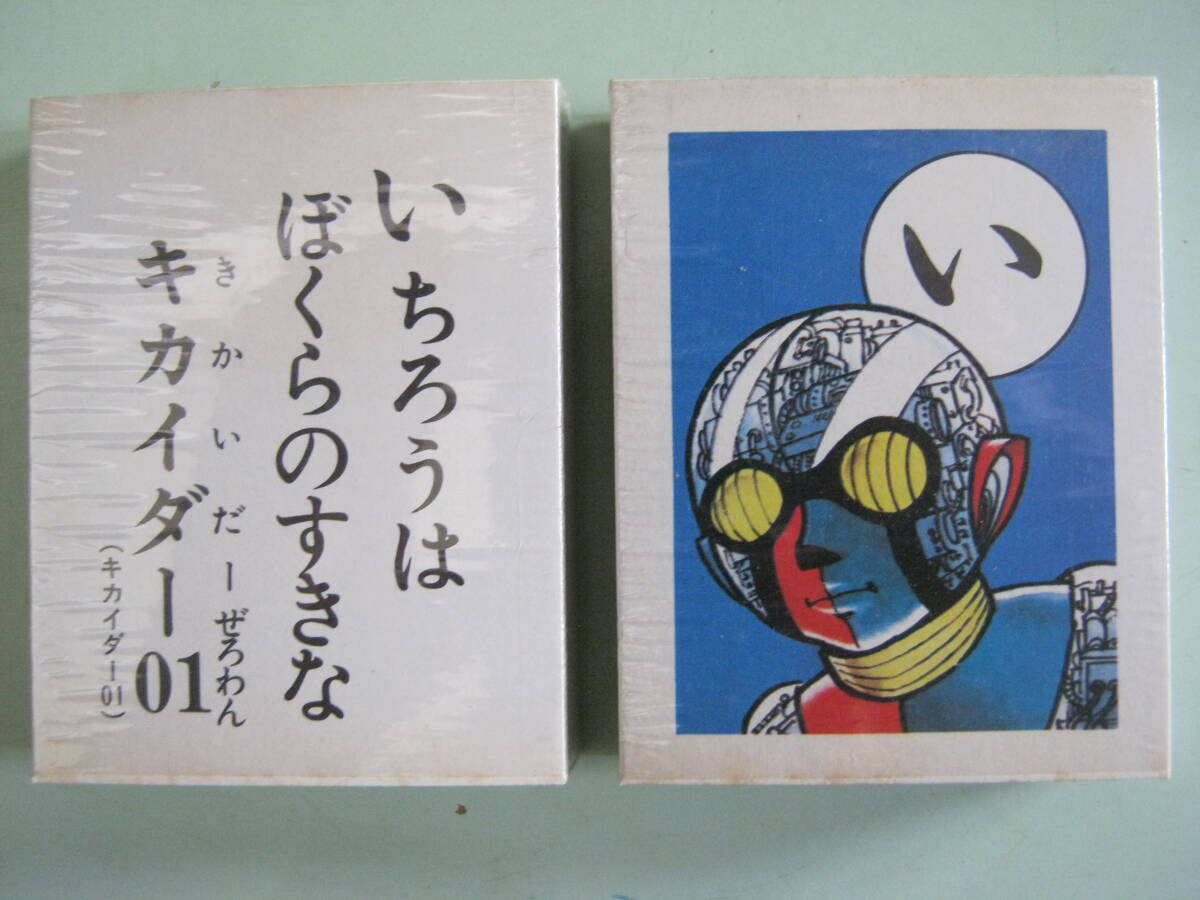 いちろうは
ぼくらのすきな
キカイダー01
きかいだーぜろわん
(キカイダー01)
い